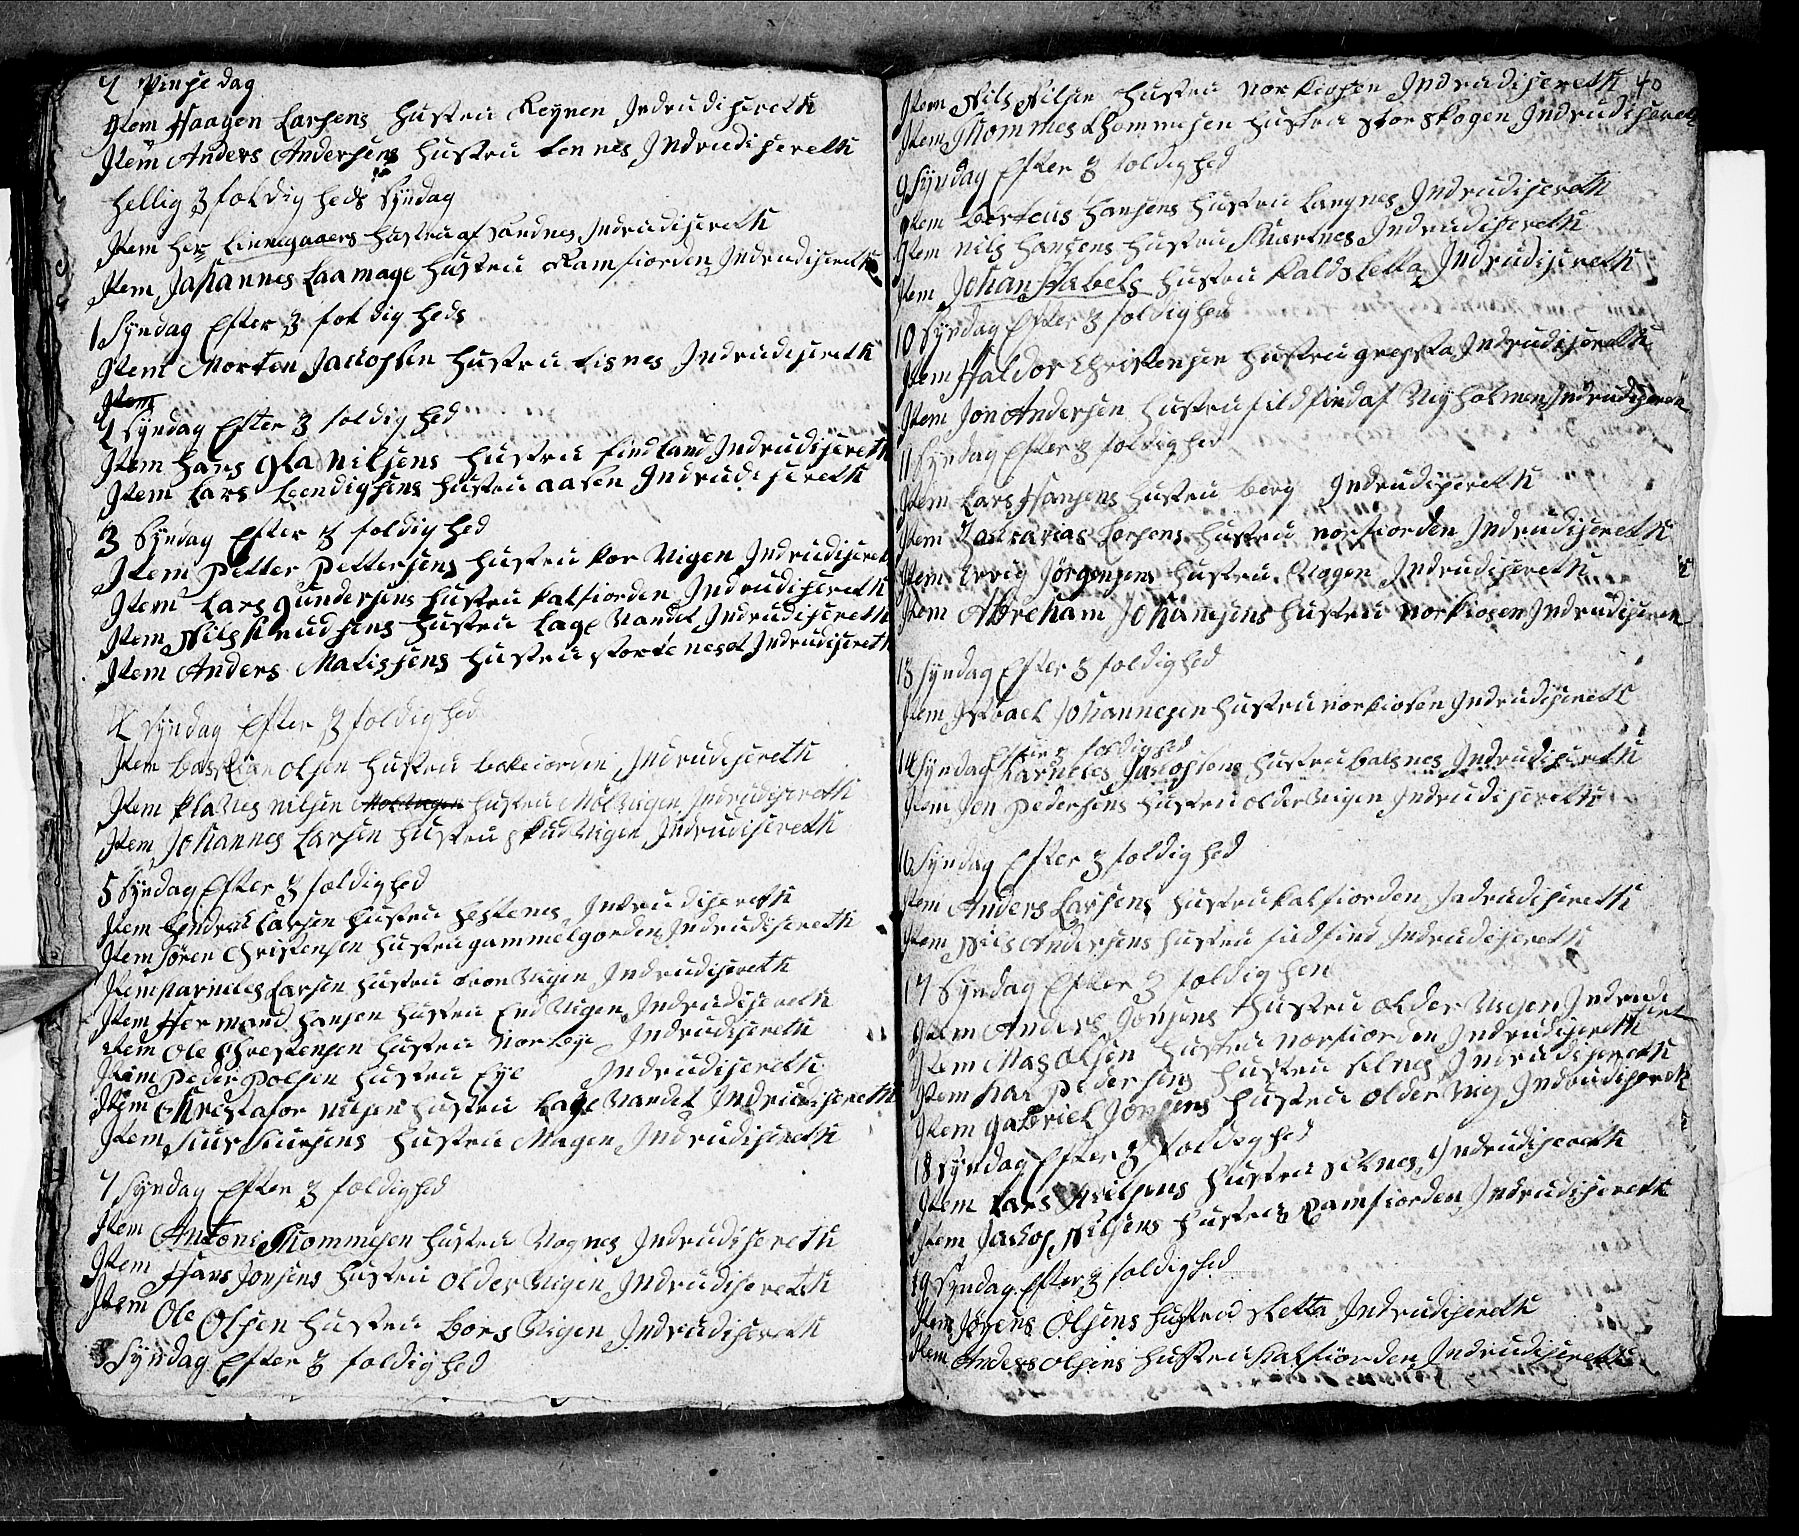 2 Pinse dag
Item Haagen Larsens Hustru Reynen Indrudisereth
Item Anders Andersens Hustru tennes Indrudisereth
hellig 3 foldig heds Syndag
Item Her Linnegaaers Hustru af Sandnes Indrudisereth
Item Johannes Laamage Hustru Ramfiorden Indrudisereth
1 Syndag Efter 3 foldig heds
Item Morten Jackopsen Hustru tisnes Indrudisereth
Item
2 Syndag Efter 3 foldighed
Item Hans Ola Nilsens Hustru findland Indrudisereth
Item Lars Hustru aasen Indrudisereth
3 Syndag Efter 3 foldighed
Item Petter Pettersens Hustru kor Vigen Indrudiseret
Item Lars Gundersens Hustru kalfiorden Indrudisereth
Item Nils Knudsens Hustru Lage Vandet Indrudisereth
Item Anders Matisens Hustru storte neset Indrudisereth
4 Syndag Efter 3 foldighed
Item Bastian Olsen Hustru Indrudisereth
Item Klavnes Nilsen Hustru Møl Vigen Indrudisereth
Item Johannes Larsen Hustru skud Vigen Indrudisereth
5 Syndag Efter 3 foldighed
Item Hendrik Larsen Hustru hestenes Indrudisereth
Item Søren Christensen Hustru gammelgorden Indrudisereth
Item Larsen Hustru Vigen Indrudisereth
Item Hermand Hansen Hustru Vigen Indrudisereth
Item Ole Christensen Hustru Indrudisereth
Item Peder Polsen Hustru Eye Indrudisereth
Item Christafor Nilsen Hustru Lage Vandet Indrudisereth
Item Siur Siursens Hustru Indrudisereth
7 Syndag Efter 3 foldighed
Item Antoni Thommesen Hustru Vognes Indrudisereth
Item Hans Jonsens Hustru Older Vigen Indrudisereth
Item Ole Olsen Hustru Bors Vigen Indrudisereth
8 Syndag Efter 3 foldighed
Item Nils Nilsen Hustru Nor kiosen Indrudisereth 40
Item Thommes Thommesen Hustru stor skogen Indrudisereth
9 Syndag Efter 3 foldighed
Item Berteus Hansens Hustru Langnes Indrudisereth
Item Nils Hansens Hustru Indrudisereth
Item Johan Habels Hustru kalds letta Indrudisereth
10 Syndag Efter 3 foldighed
Item Haldor Christensen Hustru gressta Indrudisereth
Item Jon Andersen Hustru fildfind af Ny holmen Indrudiseren
11 Syndag Efter 3 foldighed
Item Lars Hansens Hustru berg Indrudisereth
Item Hustru norfiorden Indrudisereth
Item Ervig Jørgensens Hustru Indrudisereth
Item Abreham Johansens Hustru norkiosen Indrudiseren
13 Syndag Efter 3 foldighed
Item Johannesen Hustru norkiosen Indrudiseret
14 Syndag Efter 3 foldighed
Karneles Jackopsens Hustru balsnes Indrudisereth
Item Jon Pedersens Hustru older Vigen Indrudisereth
16 Syndag Efter 3 foldighed
Item Anders Larsens Hustru kalfiorden Indrudisereth
Item Nils Andersens Hustru Indrudisereth
17 Syndag Efter 3 foldighen
Item Anders Jonsens Hustru older Vigen Indrudi
seret
Item Mas Olsen Hustru norfiorden Indrudisereth
Item Pedersens Hustru selnes Indrudisereth
Item Gabriel Jonsens Hustru older Vig Indrudisereth
18 Syndag Efter 3 foldighed
Item Lars Nilsens Hustru selnes Indrudisereth
Item Jackop Nilsens Hustru Ramfiorden Indrudisereth
19 Syndag Efter 3 foldighed
Item Jørens Olsens Hustru sletta Indrudisereth
Item Anders Olsens Hustru kalfiorden Indrudisereth